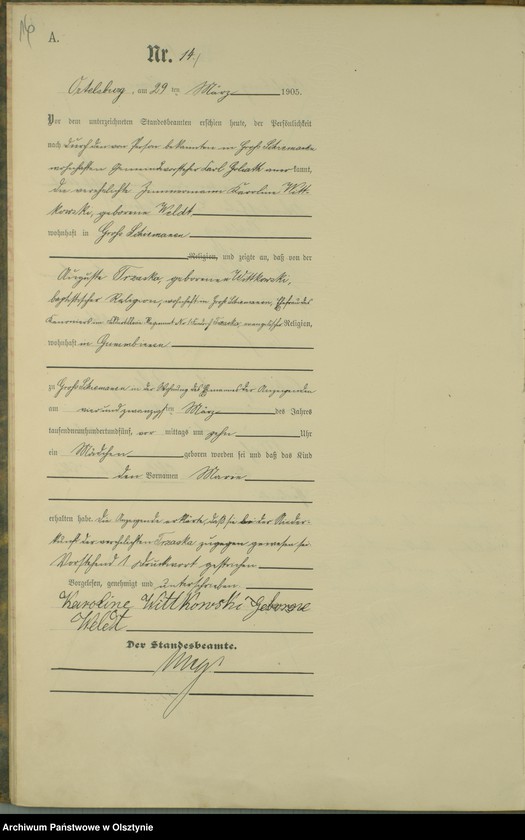 16
A.
Nr. 14
Ortelsburg, am 29 ten März 1905.
Vor dem unterzeichneten Standesbeamten erschien heute, der Persönlichkeit
nach durch den von Person bekannten in Groß
wohnhaften Gemeindevorsteher Karl anerkannt,
die verehelichte Zimmermann Karoline Witt-
kowski, geborene Weldt
wohnhaft in Groß
Religion, und zeigte an, daß von der
Auguste Trzaska, geborenen Wittkowski,
baptistischer Religion, wohnhaft in Groß Ehefrau des
Trzaska, Religion,
wohnhaft in Gumbinnen
zu Groß in der Wohnung des Ehemannes der Anzeigenden
am vierundzwanzigsten März des Jahres
tausendneunhundertundfünf, vor mittags um zehn Uhr
ein Mädchen geboren worden sei und daß das Kind
den Vornamen Marie
erhalten habe. Die Anzeigende erklärte, daß sie bei der Nieder-
kunft der verehelichten Trzaska zugegen gewesen sei.
Vorstehend 1 Druckwort gestrichen
Vorgelesen, genehmigt und unterschrieben
Karoline Wittkowski Geborene
Weldt
Der Standesbeamte.
Archiwum Państwowe w Olsztynie